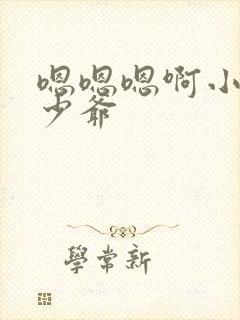 嗯嗯嗯啊小
少爺
學常新